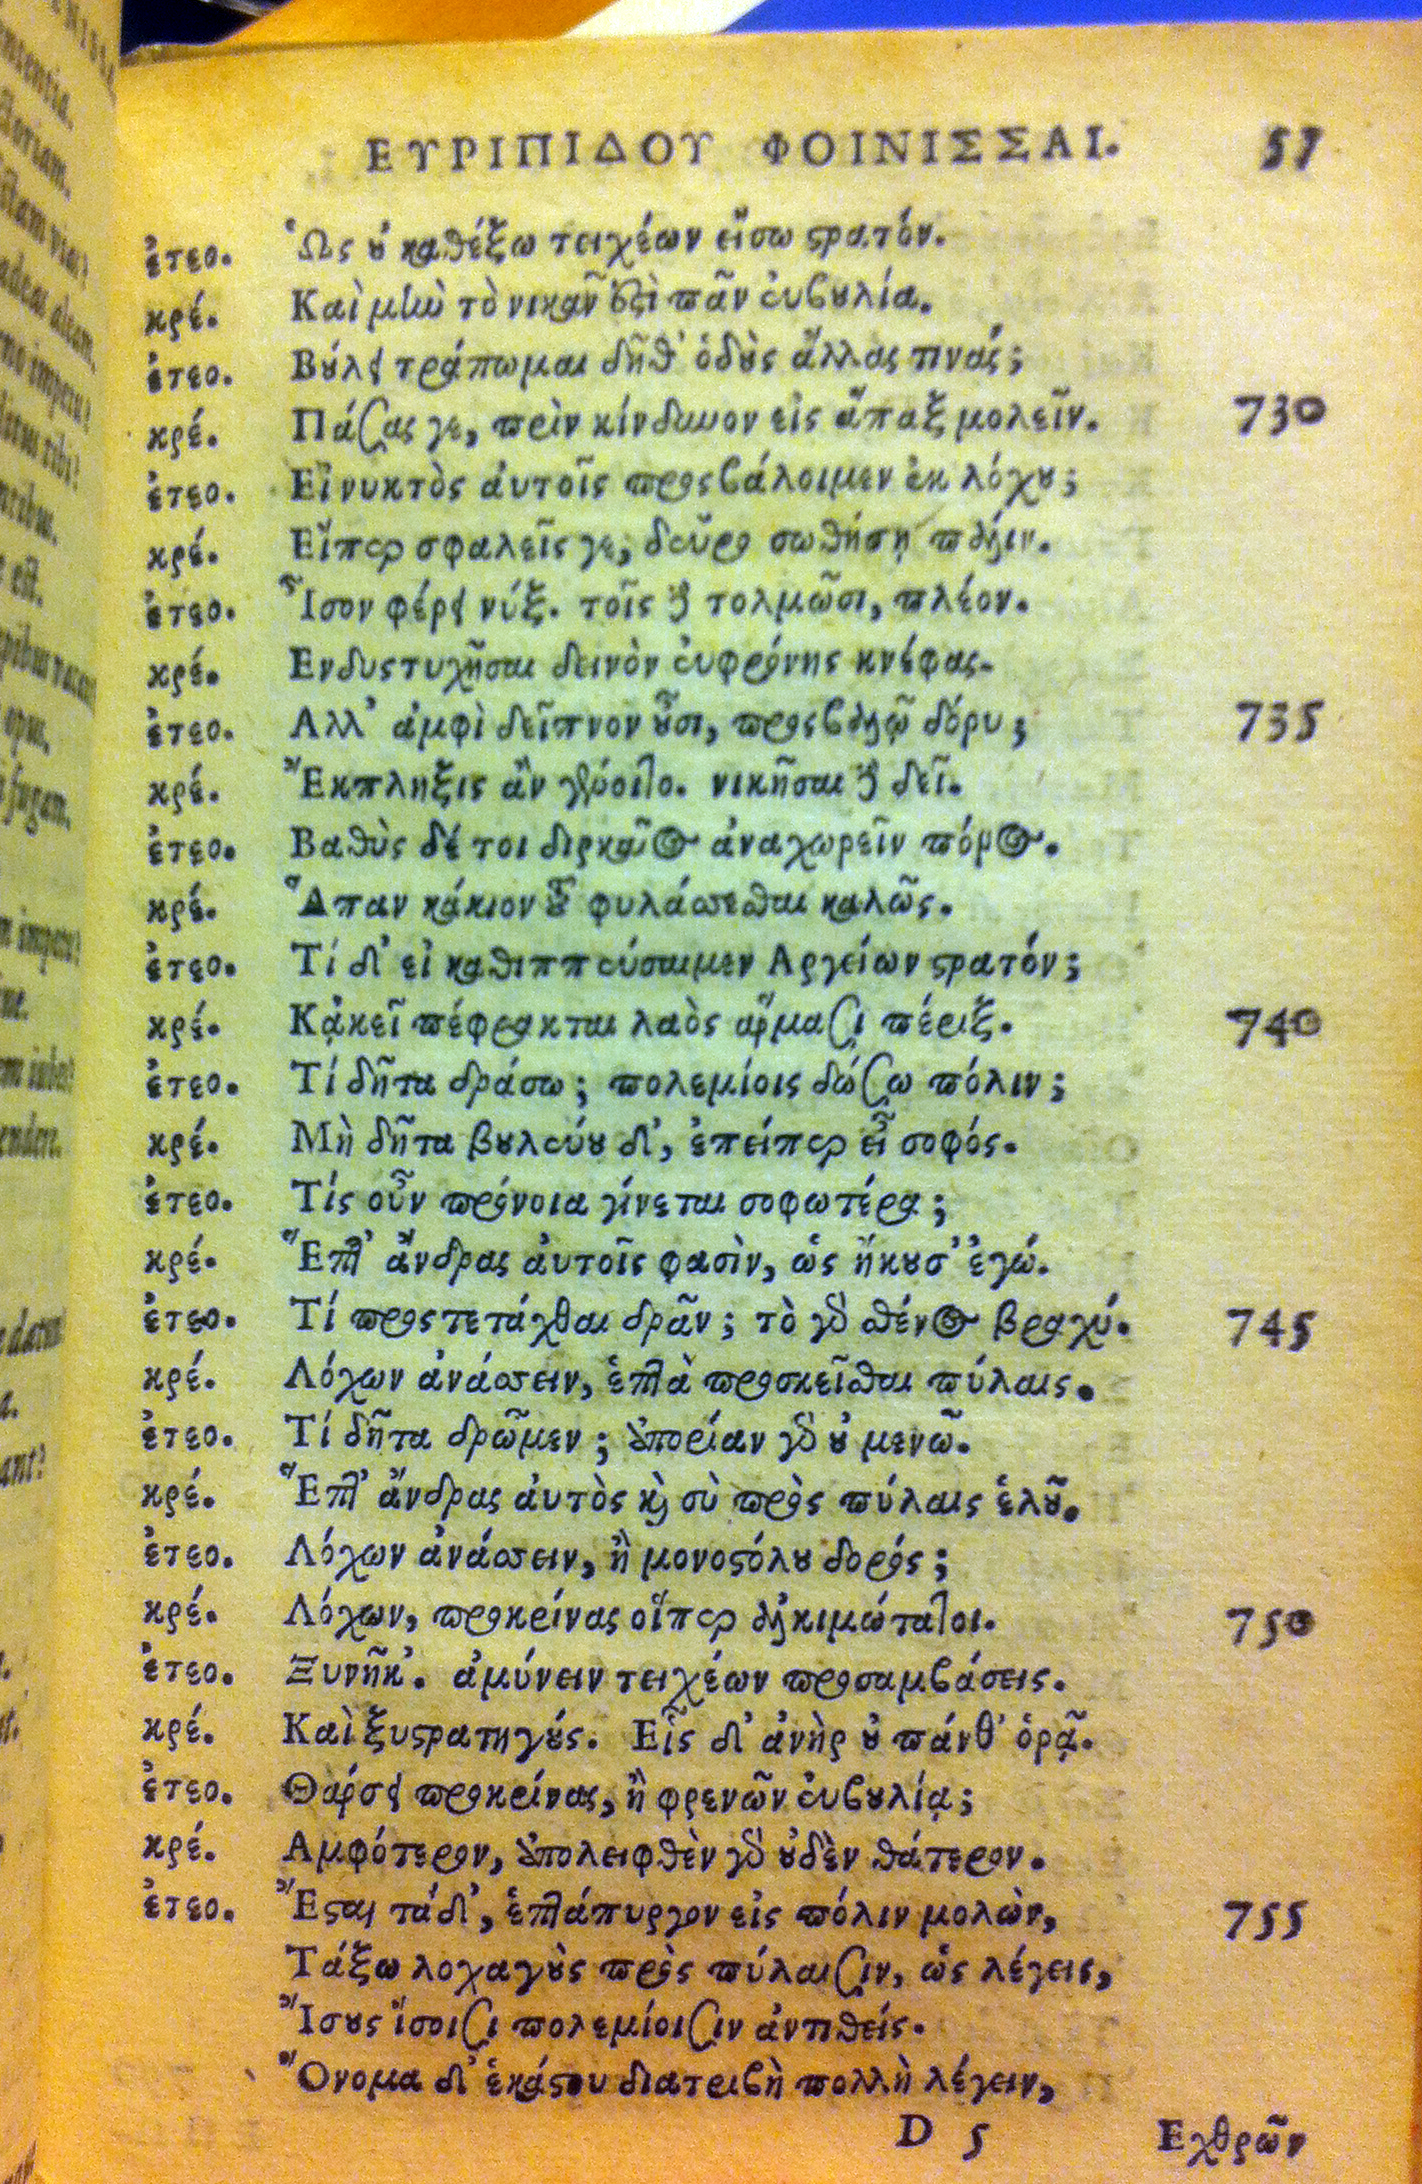 ΕΥΡΙΠΙΔΟΥ ΦΟΙΝΙΣΣΑΙ. 57
ἐτεο. Ὡς ȣ̓ καθέξω τειχέων εἴσω ϛρατόν.
κρέ. Καὶ μὴν τὸ νικᾶν ἐϛὶ πᾶν ἐυβȣλία.
ἐτεο. Βȣ́λει τράπωμαι δῆθ' ὁδȣ̀ς ἄλλας τινάς;
κρέ. Πάσας γε, πρὶν κίνδυνον εἰς ἅπαξ μολεῖν. 730
ἐτεο. Εἰ νυκτὸς ἀυτοῖς προςβάλοιμεν ἐκ λόχȣ;
κρέ. Εἴπερ σφαλείς γε, δεῦρο σωθήσῃ πάλιν.
ἐτεο. Ἶσον φέρει νύξ. τοῖς δὲ τολμῶσι, πλέον.
κρέ. Ενδυςτυχῆσαι δεινὸν ἐυφρόνης κνέφας.
ἐτεο. Αλλ' ἀμφὶ δεῖπνον ȣ̓͂σι, προςβαλῶ δόρυ; 735
κρέ. Ἔκπληξις ἂν γένοιτο. νικῆσαι δὲ δεῖ.
ἐτεο. Βαθύς δέ τοι διρκαῖος ἀναχωρεῖν πόρος.
κρέ. Ἅπαν κάκιον τοῦ φυλάσσεσθαι καλῶς.
ἐτεο. Τί δ' εἰ καθιππεύσαιμεν Αργείων ϛρατόν;
κρέ. Κᾀκεῖ πέφρακται λαὸς ἅρμασι πέριξ. 740
ἐτεο. Τί δῆτα δράσω; πολεμίοις δώσω πόλιν;
κρέ. Μὴ δῆτα βȣλεύȣ δ', ἐπείπερ εἶ σοφός.
ἐτεο. Τίς οὖν πρόνοια γίνεται σοφωτέρα;
κρέ. Ἕπτ' ἄνδρας ἀυτοῖς φασὶν, ὡς ἤκȣσ' ἐγώ.
ἐτεο. Τί προςτετάχθαι δρᾶν; τὸ γὰρ σθένος βραχύ. 745
κρέ. Λόχων ἀνάσσειν, ἑπτὰ προσκεῖσθαι πύλαις.
ἐτεο. Τί δῆτα δρῶμεν; ἀπορίαν γὰρ ȣ̓ μενῶ.
κρέ. Ἕπτ' ἄνδρας ἀυτὸς καὶ σὺ πρὸς πύλαις ἑλȣ͂.
ἐτεο. Λόχων ἀνάσσειν, ἢ μονοϛόλȣ δορός;
κρέ. Λόχων, προκρίνας οἵπερ ἀλκιμώτατοι. 750
ἐτεο. Ξυνῆκ'. ἀμύνειν τειχέων προσαμβάσεις.
κρέ. Καὶ ξυϛρατηγȣ́ς. Εἷς δ' ἀνὴρ ȣ̓ πάνθ' ὁρᾷ.
ἐτεο. Θάρσει προκρίνας, ἢ φρενῶν ἐυβȣλίᾳ;
κρέ. Αμφότερον, ἀπολειφθὲν γὰρ ȣ̓δὲν θάτερον.
ἐτεο. Ἔϛαι τάδ', ἑπτάπυργον εἰς πόλιν μολὼν, 755
Τάξω λοχαγȣ̀ς πρὸς πύλαισιν, ὡς λέγεις,
Ἴσȣς ἴσοισι πολεμίοισιν ἀντιθείς.
Ὄνομα δ' ἑκάϛου διατριβὴ πολλὴ λέγειν,
D 5 Εχθρῶν